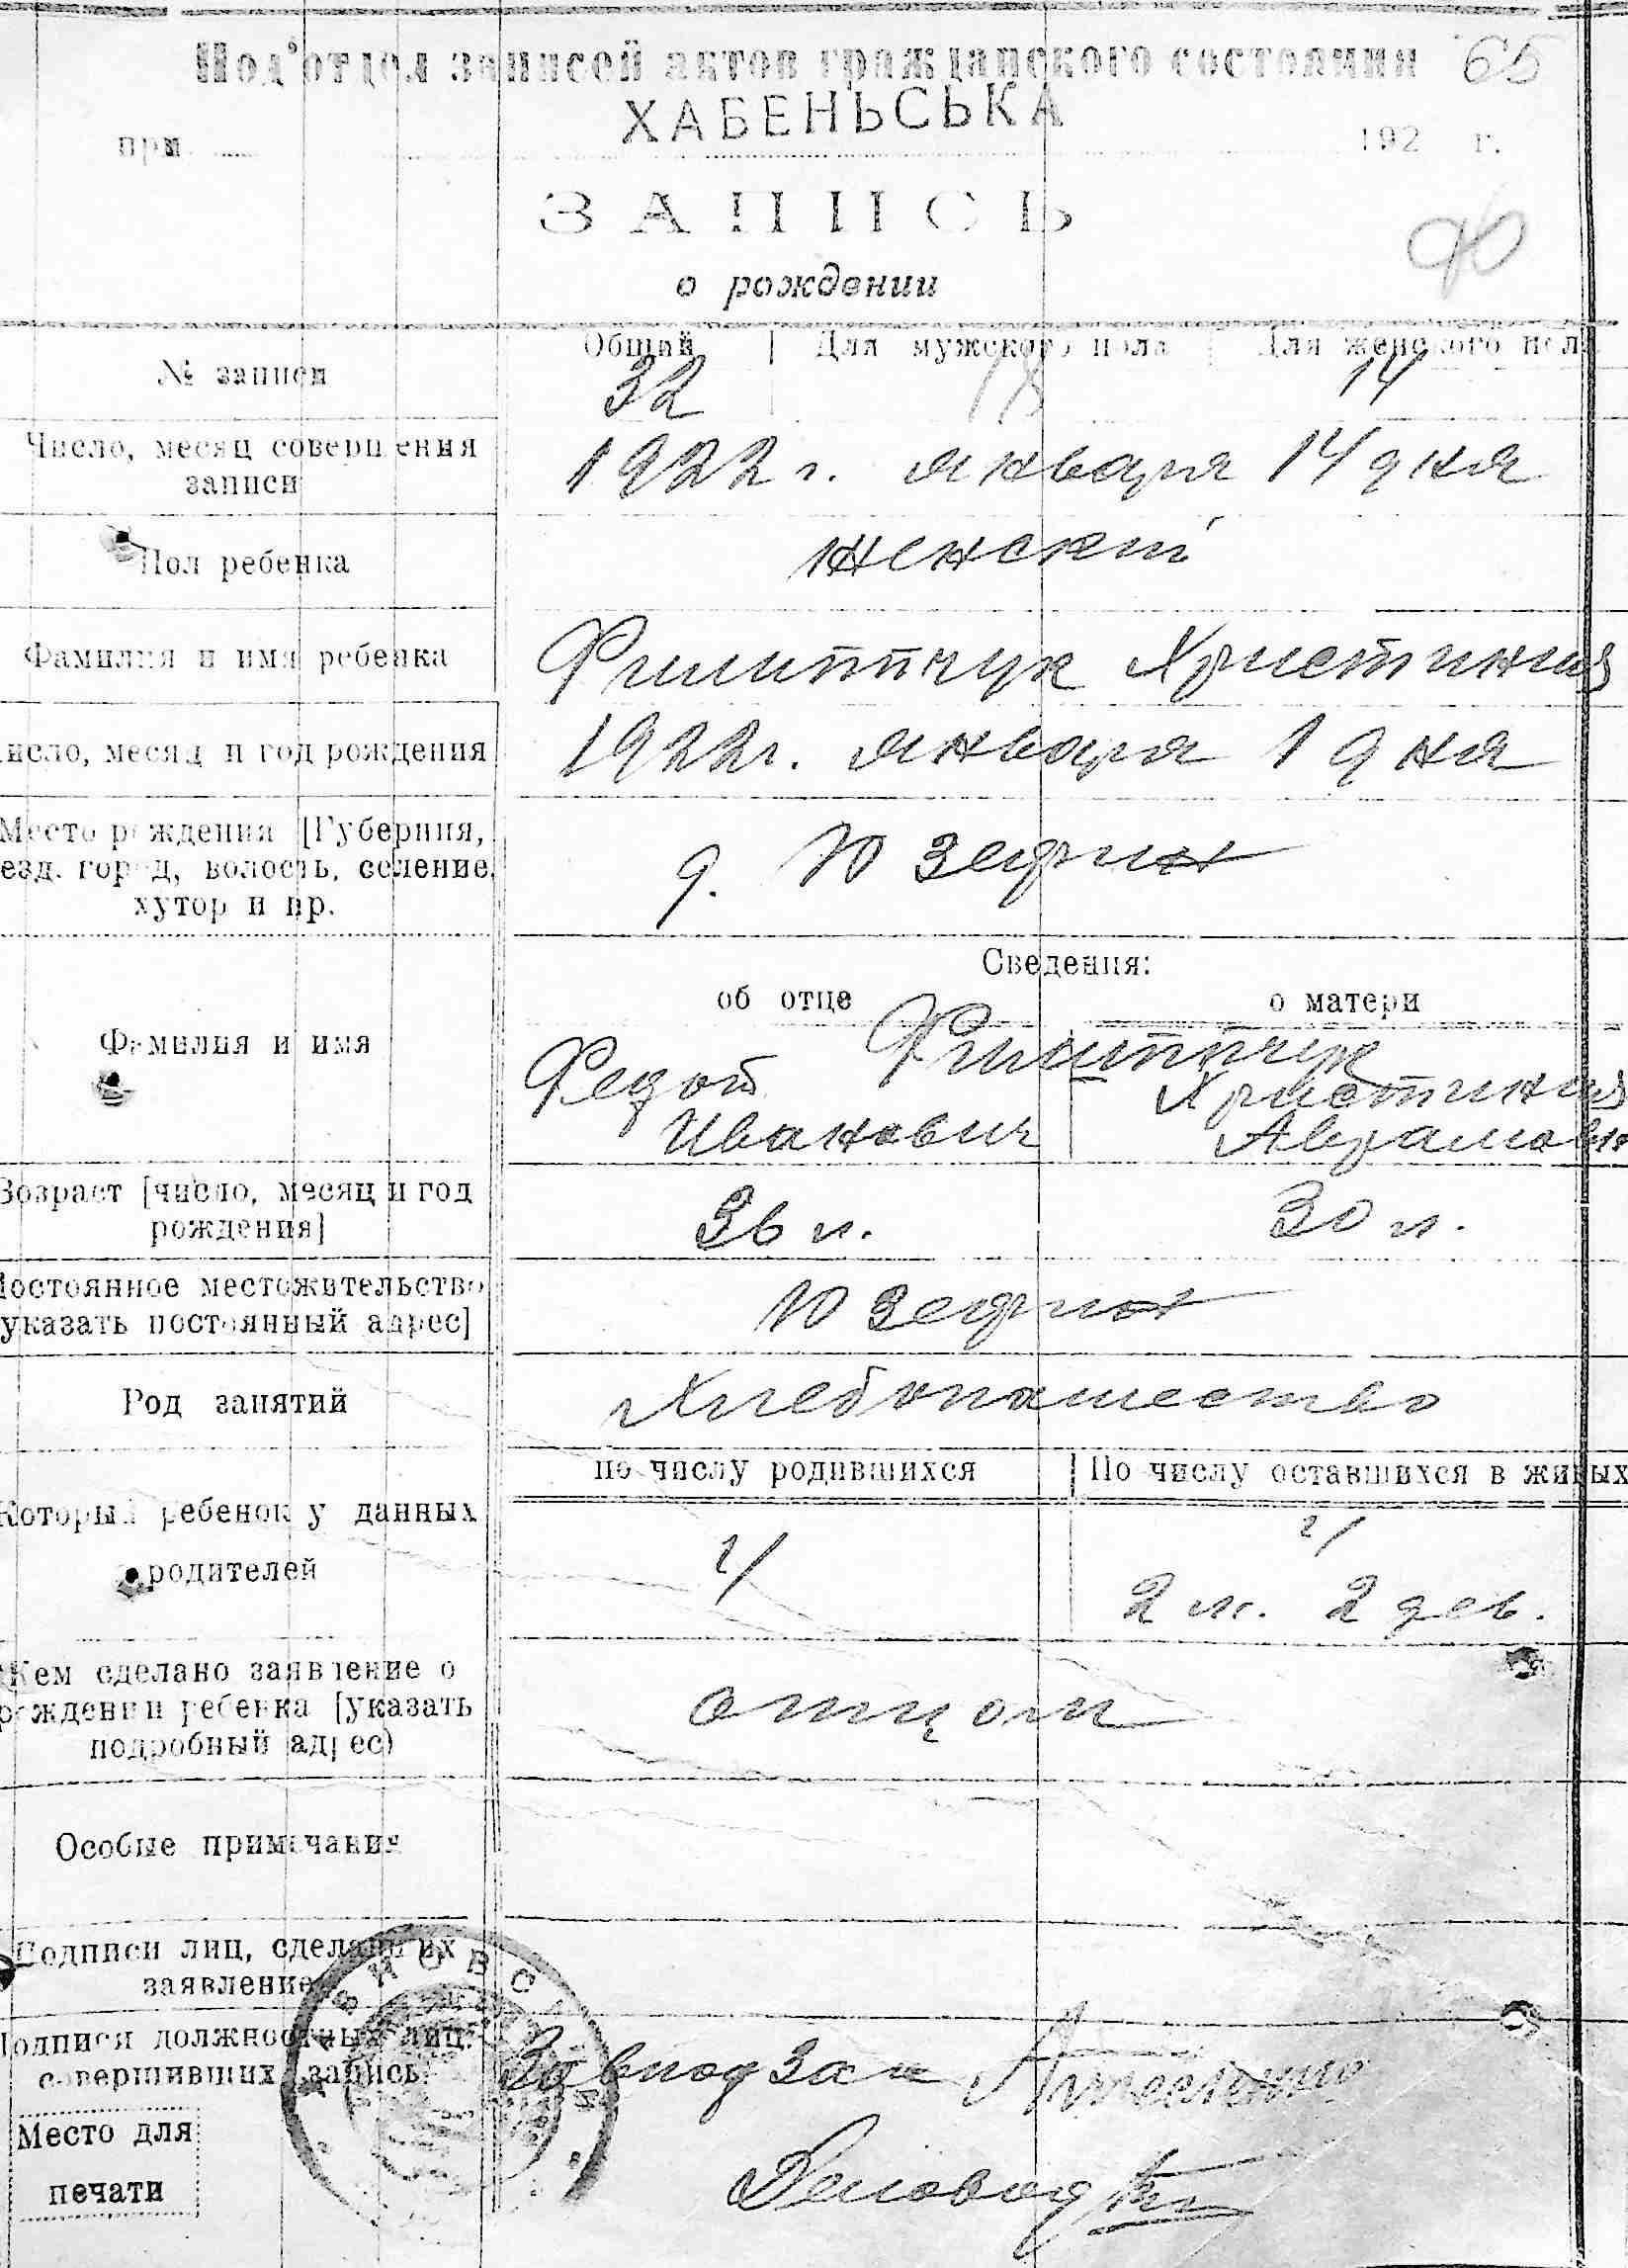 Под'отдел записей актов гражданского состояния 65
ХАБЕНЬСЬКА
при 192 г.
ЗАПИСЬ
о рождении
№ записи
Общий Для мужского пола Для женского пола
32 18 14
Число, месяц совершения
записи
1922 г. января 14 дня
Пол ребенка
женский
Фамилия и имя ребенка
Филиппчук Христиния
число, месяц и год рождения
1922 г. января 1 дня
Место рождения [Губерния,
езд. город, волость, селение,
хутор и пр.
д. Юзефин
Сведения:
об отце о матери
Фамилия и имя
Филиппчук
Федот Христиния
Иванович Аврамовн
Возраст [число, месяц и год
рождения]
36 л. 30 л.
Постоянное местожительство
указать постоянный адрес]
Юзефин
Род занятий
Хлебопашество
по числу родившихся По числу оставшихся в живых
Который ребенок у данных
родителей
4 4
2 м. 2 дев.
Кем сделано заявление о
рождении ребенка [указать
подробный адрес)
отцом
Особые примечания
Подписи лиц, сделавших
заявление
Подписи должностных лиц,
совершивших запись
Завподзаг
Деловод
Место для
печати